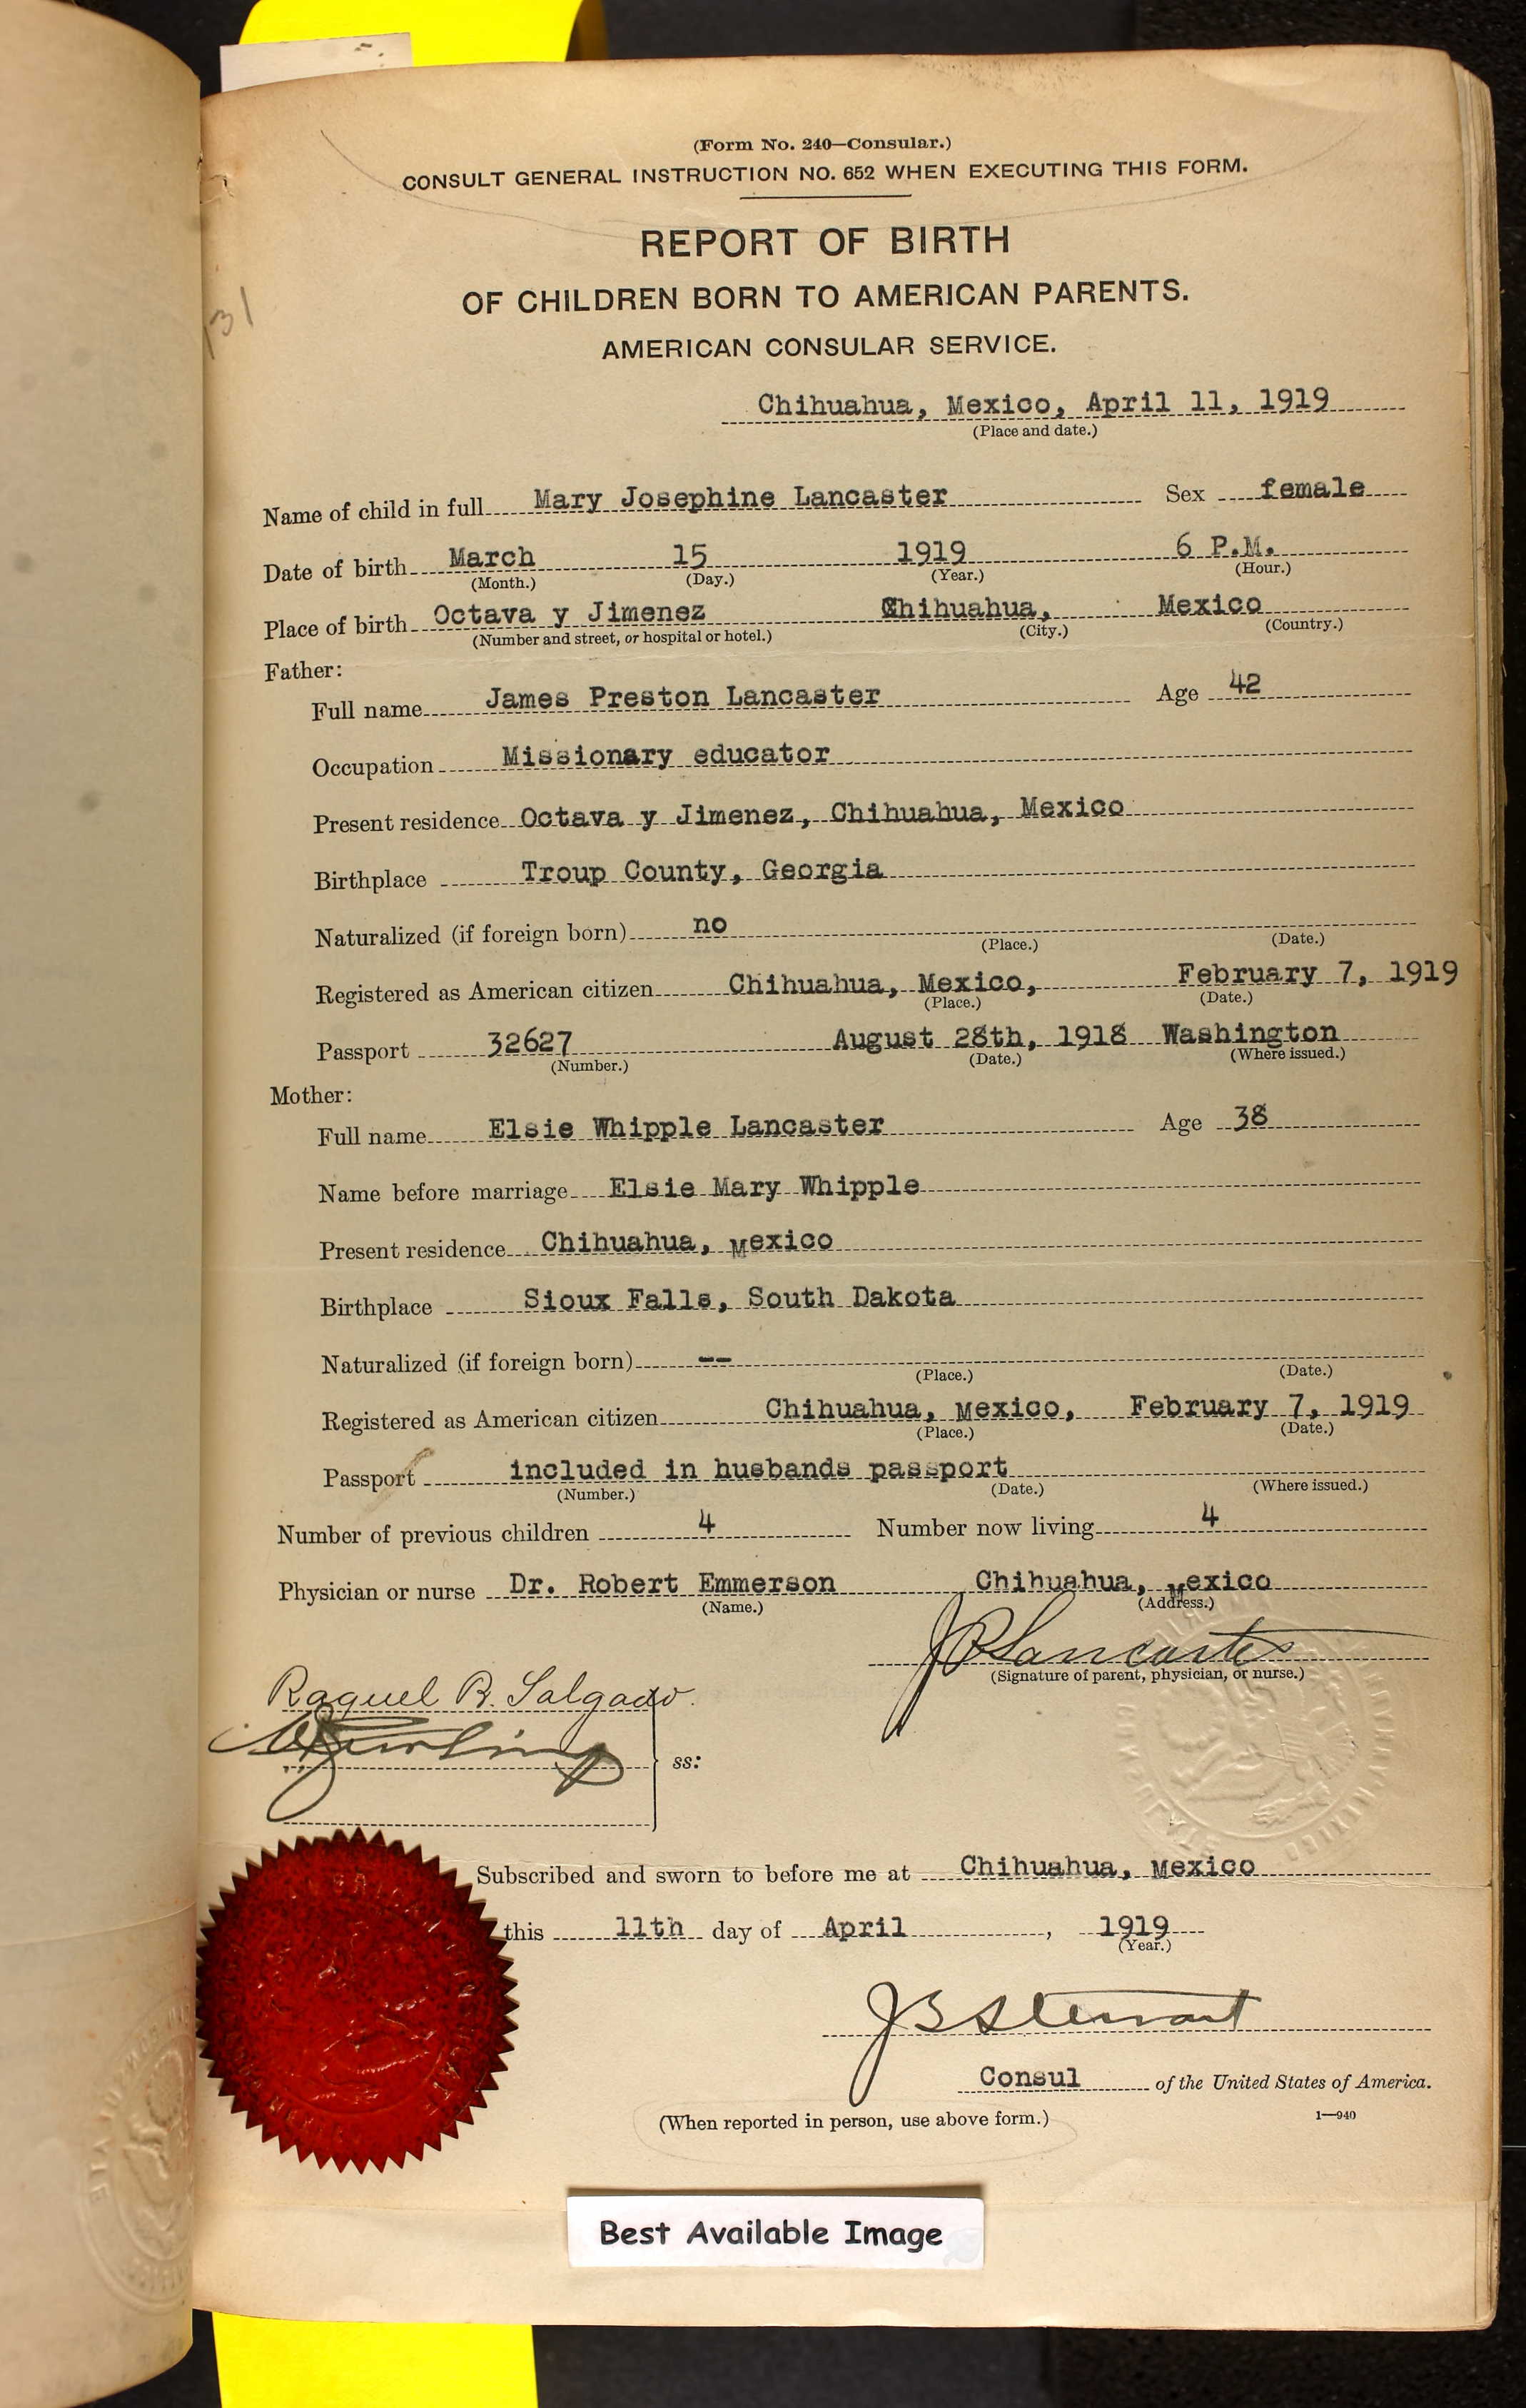 (Form No. 240—Consular.)
CONSULT GENERAL INSTRUCTION NO. 652 WHEN EXECUTING THIS FORM.
REPORT OF BIRTH
OF CHILDREN BORN TO AMERICAN PARENTS.
AMERICAN CONSULAR SERVICE.
131
Chihuahua, Mexico, April 11, 1919
(Place and date.)
Name of child in full Mary Josephine Lancaster Sex female
Date of birth March 15 1919 6 P.M.
(Month.) (Day.) (Year.) (Hour.)
Place of birth Octava y Jimenez Chihuahua, Mexico
(Number and street, or hospital or hotel.) (City.) (Country.)
Father:
Full name James Preston Lancaster Age 42
Occupation Missionary educator
Present residence Octava y Jimenez, Chihuahua, Mexico
Birthplace Troup County, Georgia
Naturalized (if foreign born) no
(Place.) (Date.)
Registered as American citizen Chihuahua, Mexico, February 7, 1919
(Place.) (Date.)
Passport 32627 August 28th, 1918 Washington
(Number.) (Date.) (Where issued.)
Mother:
Full name Elsie Whipple Lancaster Age 38
Name before marriage Elsie Mary Whipple
Present residence Chihuahua, Mexico
Birthplace Sioux Falls, South Dakota
Naturalized (if foreign born) --
(Place.) (Date.)
Registered as American citizen Chihuahua, Mexico, February 7, 1919
(Place.) (Date.)
Passport included in husbands passport
(Number.) (Date.) (Where issued.)
Number of previous children 4 Number now living 4
Physician or nurse Dr. Robert Emmerson Chihuahua, Mexico
(Name.) (Address.)
J P Lancaster
(Signature of parent, physician, or nurse.)
Raquel R. Salgado.
ss:
Subscribed and sworn to before me at Chihuahua, Mexico
this 11th day of April, 1919
(Year.)
J B Stewart
Consul of the United States of America.
(When reported in person, use above form.) 1—940
Best Available Image